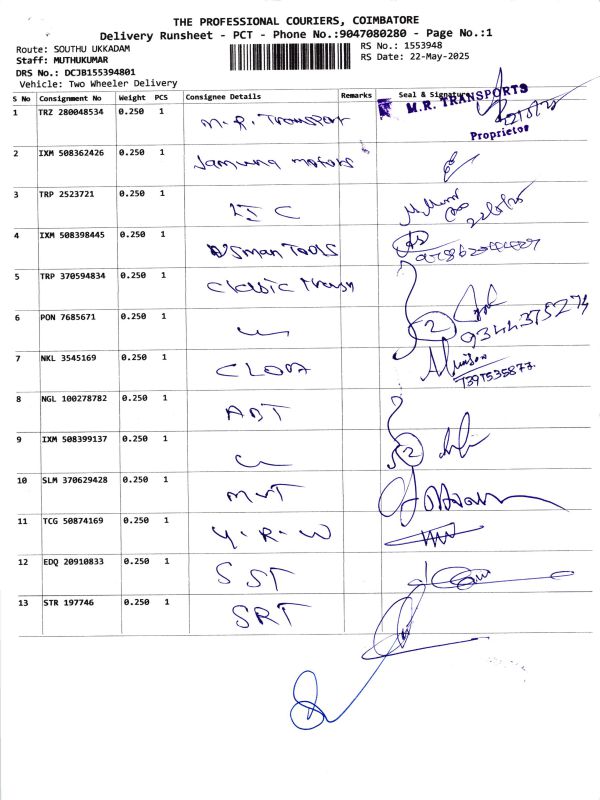 THE PROFESSIONAL COURIERS, COIMBATORE
Delivery Runsheet - PCT - Phone No.:9047080280 - Page No.:1
Route: SOUTHU UKKADAM
RS No.: 1553948
Staff: MUTHUKUMAR
RS Date: 22-May-2025
DRS No.: DCJB155394801
Vehicle: Two Wheeler Delivery
S No Consignment No Weight PCS Consignee Details Remarks Seal & Signature
M.R. TRANSPORTS
Proprietor
1 TRZ 280048534 0.250 1 M.R. Transport
2 IXM 508362426 0.250 1 Jamuna motors
3 TRP 2523721 0.250 1 22/5/25
4 IXM 508398445 0.250 1 Tools
5 TRP 370594834 0.250 1 Classic
6 PON 7685671 0.250 1 2 9344375274
7 NKL 3545169 0.250 1
8 NGL 100278782 0.250 1 ABT
9 IXM 508399137 0.250 1 2
10 SLM 370629428 0.250 1
11 TCG 50874169 0.250 1 Y.R.W
12 EDQ 20910833 0.250 1 SST
13 STR 197746 0.250 1 SRT